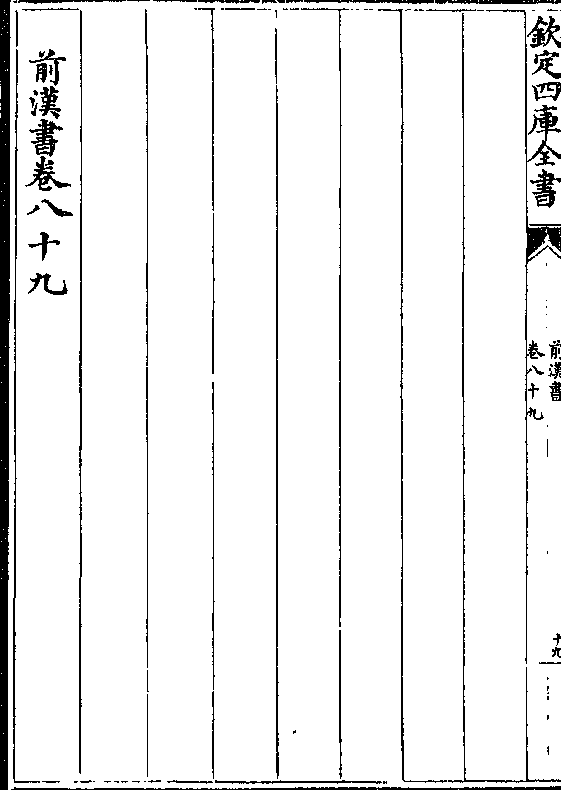 欽定四庫全書
前漢書
卷八十九
十九
前漢書卷八十九